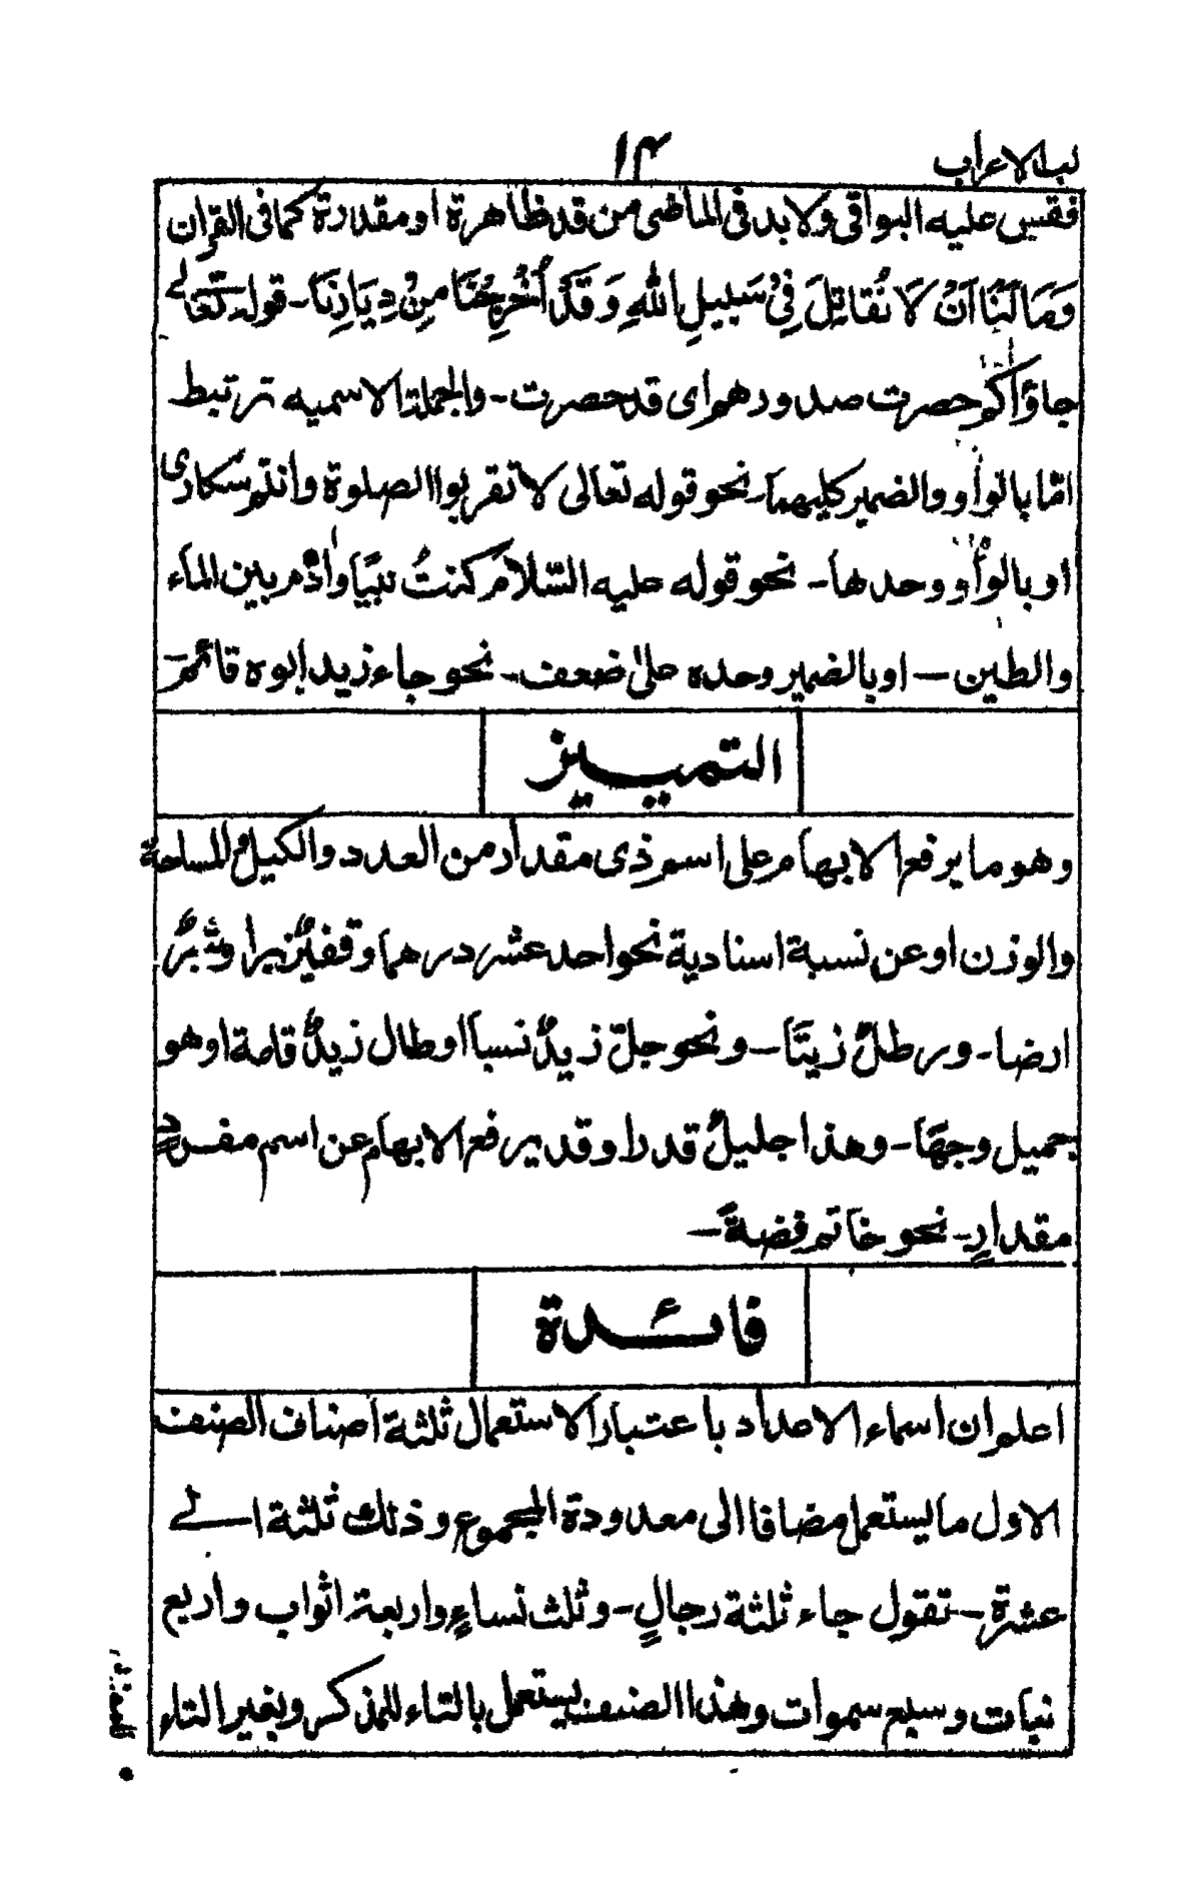 لب الاعراب
۱۴
فقس عليه البواقى ولا بد فى الماضى من قد ظاهرة او مقدرة كما فى القران
وَمَا لَنَا اَنْ لَا نُقَاتِلَ فِىْ سَبِيلِ اللهِ وَقَدْ اُخْرِجْنَا مِنْ دِيَارِنَا - قوله تعالے
جاؤاكم حصرت صدورهم اى قد حصرت - والجملة الاسميه ترتبط
امّا بالواو والضمير كليهما - نحو قوله تعالى لا تقربوا الصلوة وانتم سكارى
او بالواو وحدها - نحو قوله عليه السّلام كنتُ نبيًا واٰدم بين الماء
والطين - او بالضمير وحده على ضعف - نحو جاء زيد ابوه قائم
التمييز
وهو ما يرفع الابهام على اسم ذى مقدار من العدد والكيل والمساحة
والوزن او عن نسبة اسنادية نحو احد عشر درهما وقفيزٌ برا وشبرٌ
ارضا - ورطلٌ زيتًا - ونحو جلّ زيدٌ نسبا او طال زيدٌ قامة او هو
جميل وجهًا - وهذا جليلٌ قدرا وقد يرفع الابهام عن اسم مفردٍ
مقدارٍ - نحو خاتم فضةً -
فائدة
اعلم ان اسماء الاعداد باعتبار الاستعمال ثلثة اصناف الصنف
الاول ما يستعمل مضافا الى معدودة المجموع وذلك ثلثة الے
عشرة - تقول جاء ثلثة رجالٍ - وثلث نساءٍ واربعة اثواب واربع
نبات وسبع سموات وهذا الصنف يستعمل بالتاء للمذكر وبغير التاء